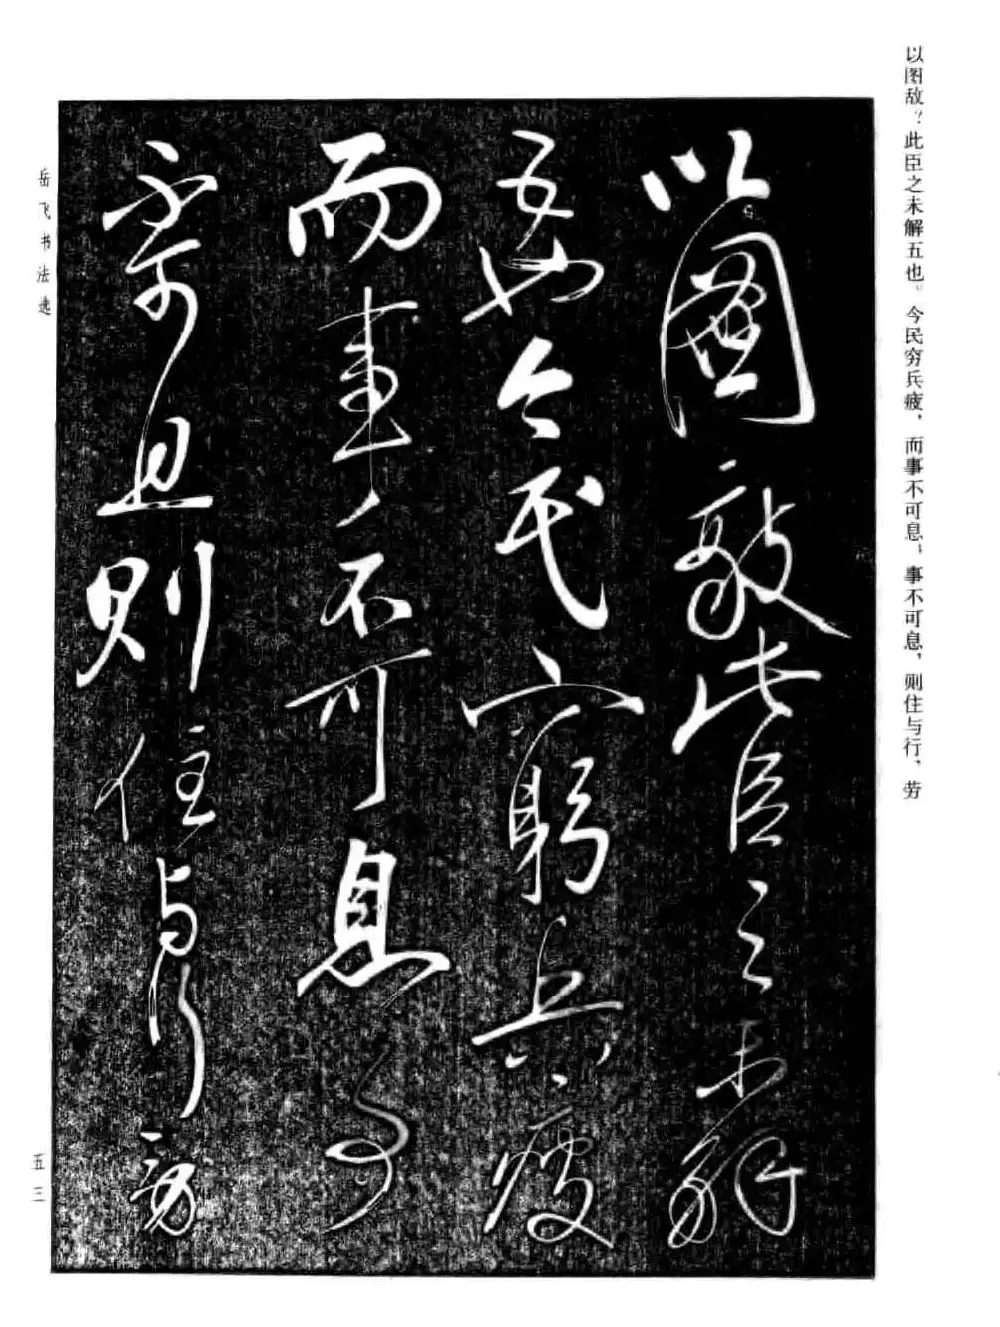 以图敌？此臣之未解五也。今民穷兵疲，而事不可息；事不可息，则住与行，劳
以圖敵此臣之未解
五也今民窮兵疲
而事不可息事
不可息則住与行勞
岳飞书法选
五三